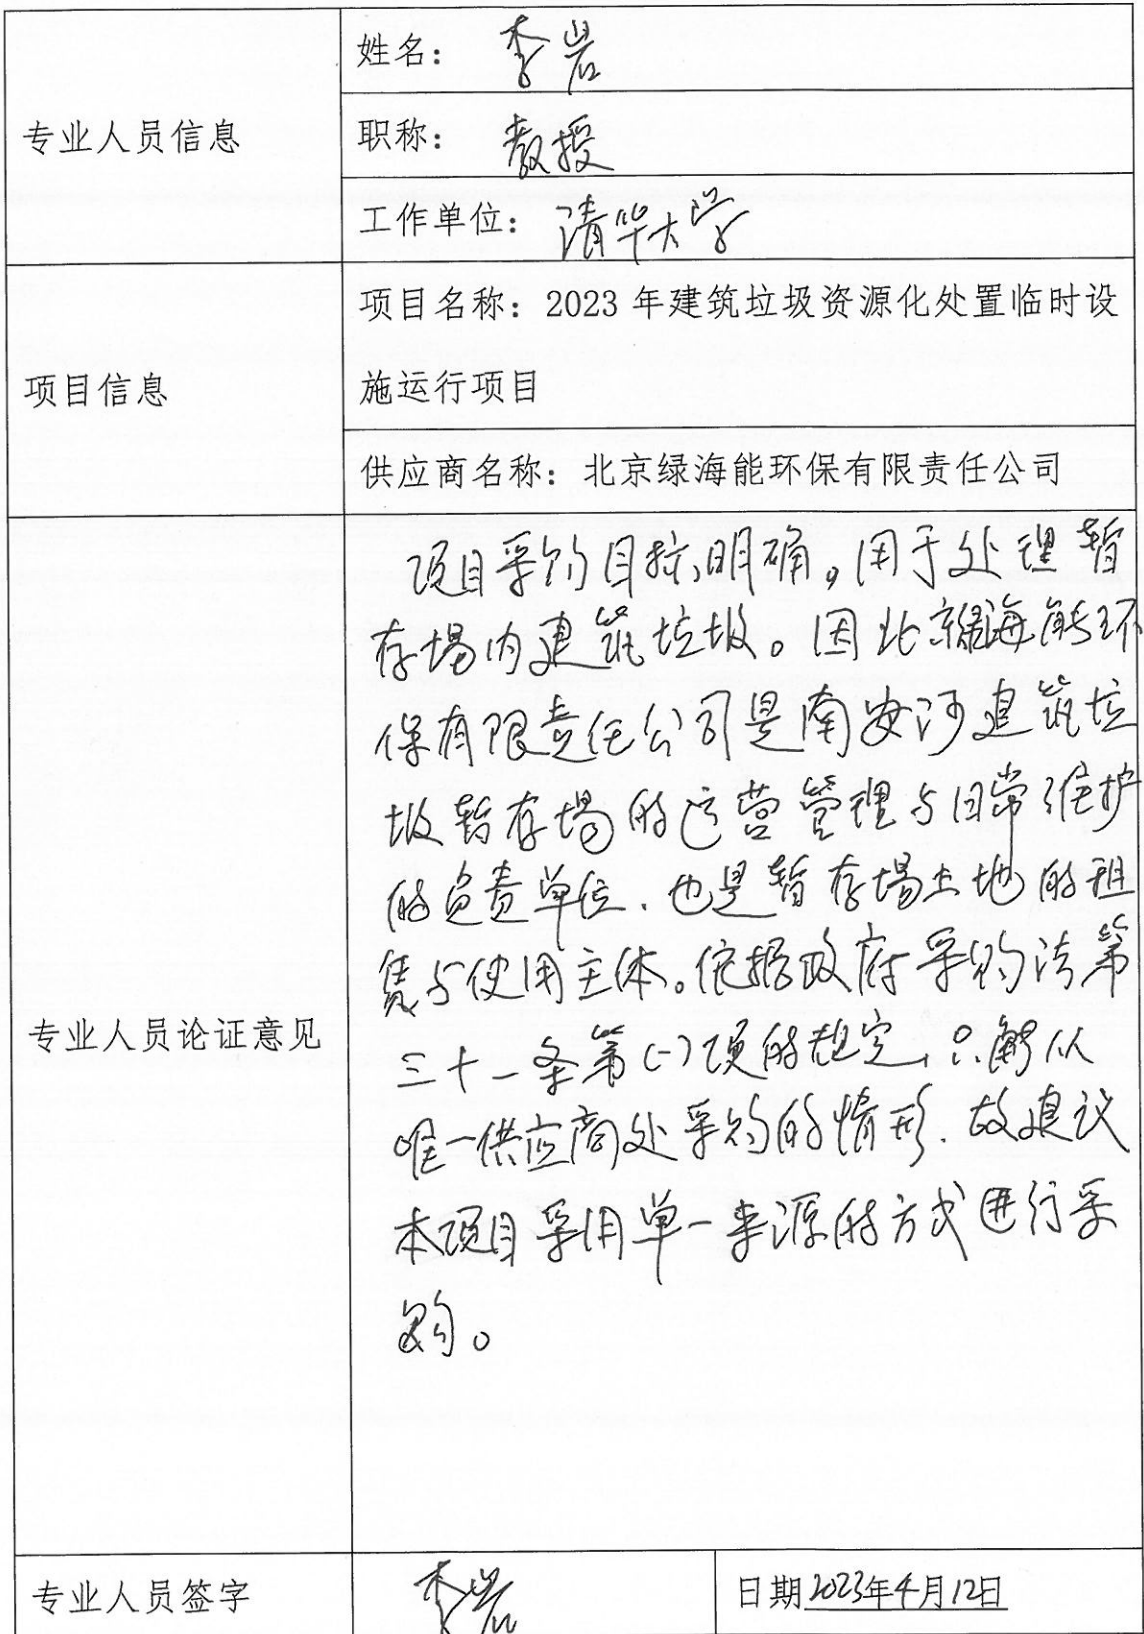 专业人员信息
姓名：李岩
职称：教授
工作单位：清华大学
项目信息
项目名称：2023年建筑垃圾资源化处置临时设
施运行项目
供应商名称：北京绿海能环保有限责任公司
专业人员论证意见
项目采购目标明确，用于处理暂
存场内建筑垃圾。因北京绿海能环
保有限责任公司是南安河建筑垃
圾暂存场的运营管理与日常维护
的负责单位，也是暂存场土地的租
赁与使用主体。依据政府采购法第
三十一条第(一)项的规定，只能从
唯一供应商处采购的情形，故建议
本项目采用单一来源的方式进行采
购。
专业人员签字
李岩
日期2023年4月12日